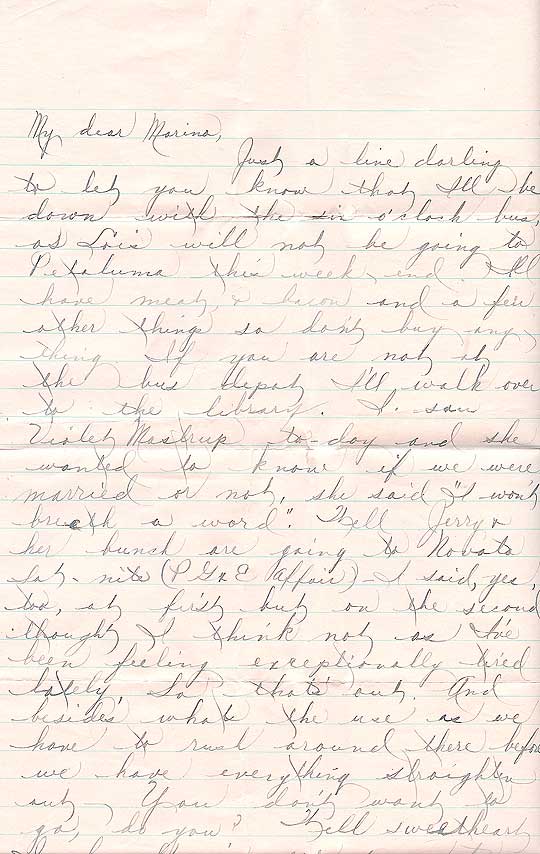 My dear Marino,
Just a line darling
to let you know that I'll be
down with the six o'clock bus,
as Lois will not be going to
Petaluma this week end. I'll
have meat, & bacon and a few
other things so don't buy any-
thing. If you are not at
the bus depot I'll walk over
to the library. I saw
Violet Mastrup to-day and she
wanted to know if we were
married or not, she said "I won't
breath a word". Well Jerry &
her bunch are going to Novato
Sat-nite (P G & E affair) - I said, yes,
too, at first but on the second
thought I think not as I've
been feeling exceptionally tired
lately, So that's out. And
besides what the use as we
have to rush around there before
we have everything straighten
out - You don't want to
go, do you? Well sweetheart